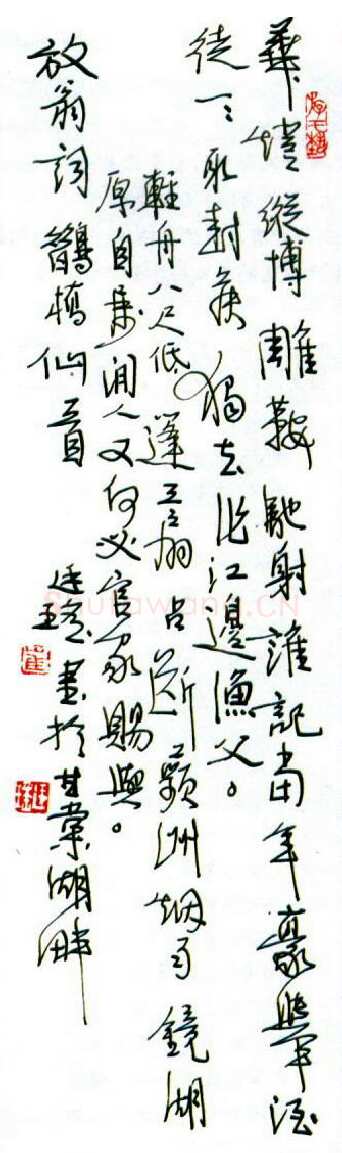 華燈縱博雕鞍馳射誰記當年豪舉酒
徒一一取封侯獨去作江邊漁父。
輕舟八尺低篷三扇占斷蘋洲烟雨鏡湖
原自屬閒人又何必官家賜與。
放翁詞鵲橋仙一首 書於甘棠湖畔
Shufawang.CN